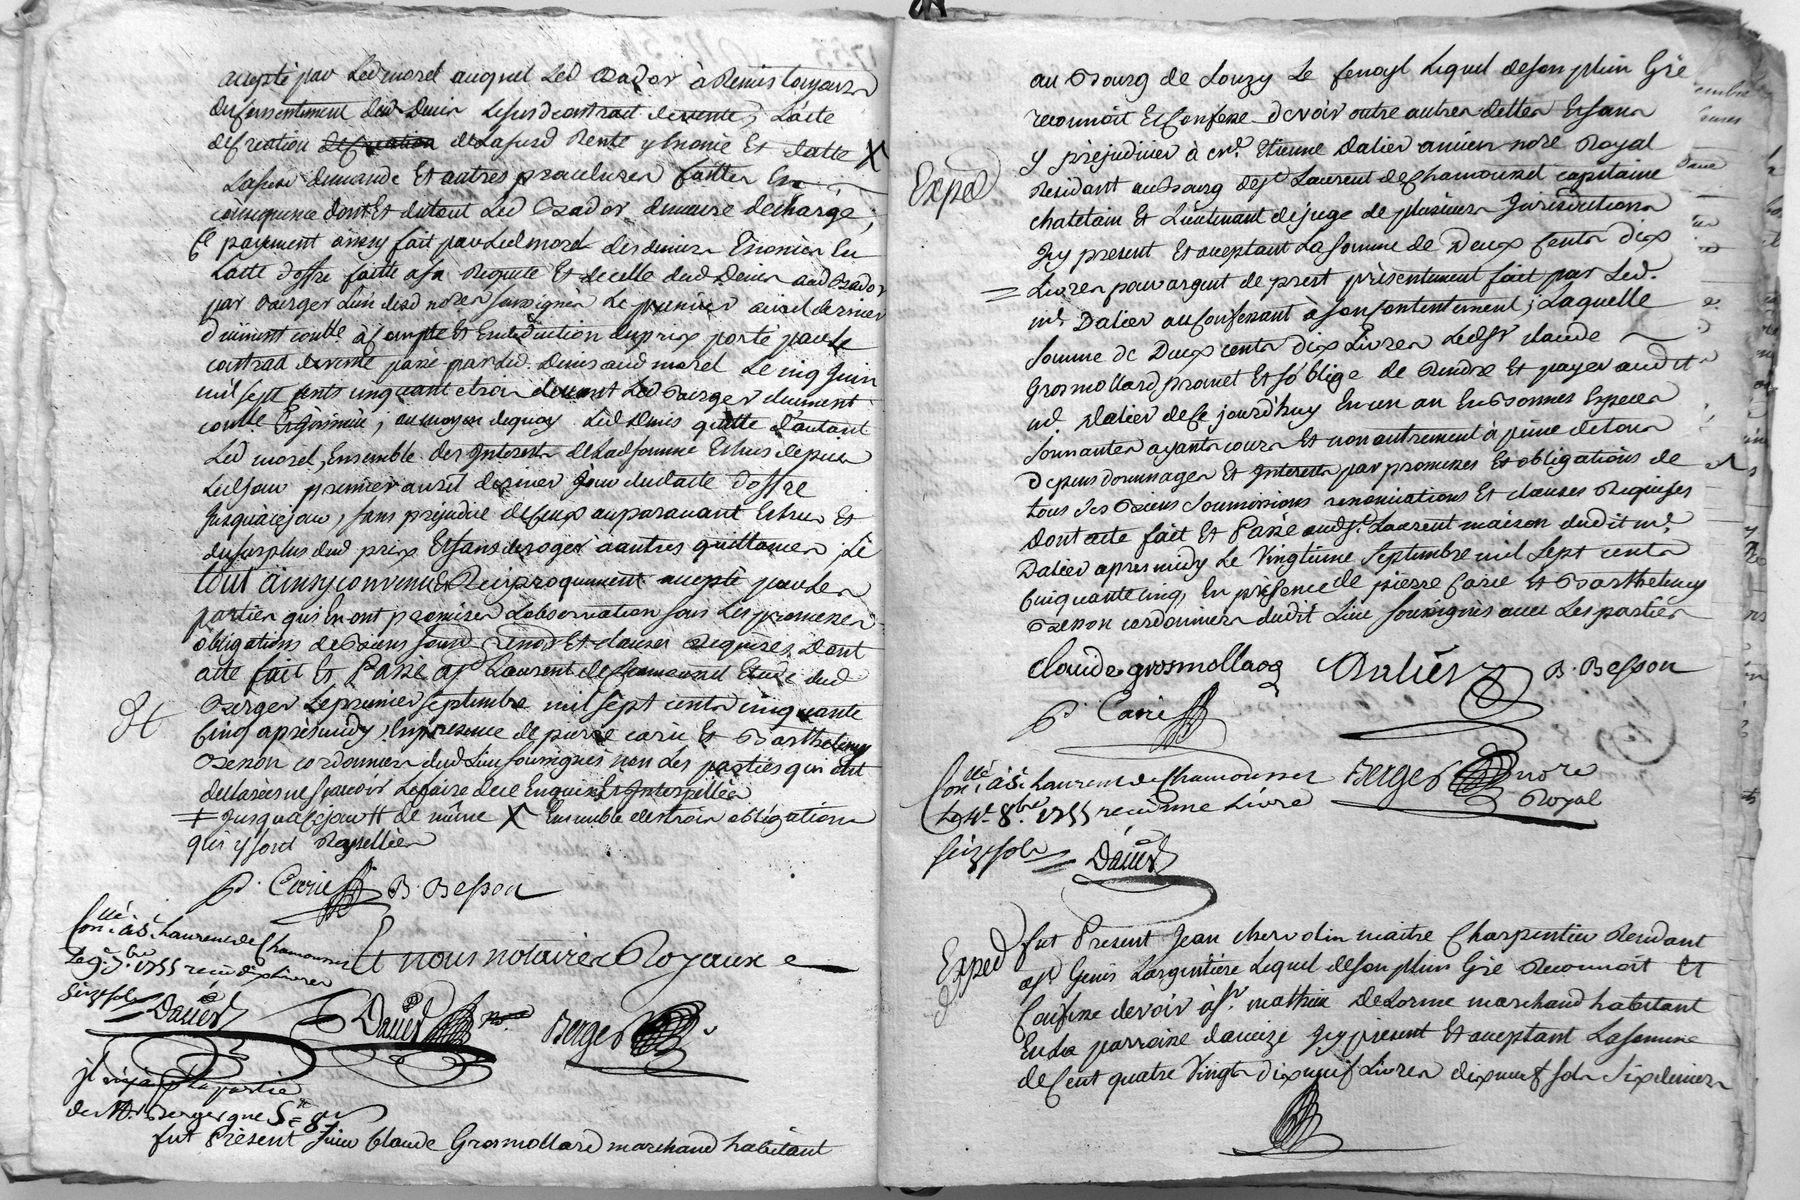 accepté par Led morel auquel Led Bador à Remis Comme
du Consentement dud Denis Lesusd contrat de vente, L'acte
de Creation de Lasusd Rente y Enoncé Et datte X
Lasusd demande Et autres procedures faittes En
consequence dont Et du tout Led Bador demeure décharge,
Ce payement ainsy fait par Led morel des deniers Enoncés En
L'acte d'offre faitte a sa Requete Et de celle dud Denis aud Bador
par Berger L'un desd notres soussignes Le premier avril dernier
Duement conllé à Compte Et En déduction du prix porté par Le
contrat de vente passé par Led. Denis aud morel Le cinq Juin
mil sept cents cinquante trois devant Led Berger duement
conllé ; au moyen de quoy Led Denis quitte D'autant
Led morel, Ensemble des Interests de Lad somme Echus depuis
Led jour premier avril dernier Jour de L'acte d'offre
Jusqu'a ce jour, sans prejudice de Ceux auparavant Echus Et
du surplus dud prix Et sans deroger a autres quittances, Le
tout ainsy convenu & Reciproquement accepté par Les
parties qui En ont promis L'observation sous Les promesses
obligations de Biens soumd renons Et clauses Requises. Dont
acte fait Et Passé a St Laurent de Chamousset Etude dud
Berger Le premier Septembre mil sept cents cinquante
Cinq après midy, En presence de pierre Carié Et Barthelemy
Besson cordonniers dud Lieu soussignés non Les parties qui ont
declarées ne sçavoir Le faire de ce Enquis Et Interpellées
Jusqu'a ce jour # de même X Ensemble des trois obligations
qui y sont Rappellées
P. Carié B. Besson
Conllé à St Laurent de Chamousset
Le 9e 7bre 1755 reçu dix Livres
Seize sols Daviers
Et nous notaires Royaux
Dalier Berger
Il n'y a p. la partie
de Mr Berger que
fut Présent Sieur Claude Grosmollard marchand habitant
au Bourg de Souzy Le fenoyl Lequel de son plein Gré
reconnoit Et Confesse devoir outre autres dettes Et sans
y préjudicier à mr. Etienne Dalier ancien notre Royal
Expéd
Residant au Bourg de St Laurent de Chamousset capitaine
chatelain Et Lieutenant de juge de plusieurs Jurisdictions
Icy present Et acceptant La Somme de Deux Cents dix
Livres pour argent de prest présentement fait par Led.
mr. Dalier au Confessant à son Contentement ; Laquelle
Somme de Deux cents dix Livres Led Sr Claude
Grosmollard promet Et s'oblige de Rendre Et payer audit
mr. Dalier de Ce jourd'huy En un an En Bonnes Especes
sonnantes ayants cours Et non autrement à peine de tous
Depens dommages Et Interests par promesses Et obligations de
tous ses Biens Soumissions renonciations Et clauses Requises
Dont acte fait Et Passé aud St. Laurent maison dudit mr.
Dalier apres midy Le Vingtieme Septembre mil Sept cents
Cinquante cinq, En présence de pierre Carié Et Barthelemy
Besson cordonniers dudit Lieu soussignés avec Les parties
Claude grosmollard Dalier B. Besson
P. Carié
Conllé à St Laurent de Chamousset
Le 4e 8bre 1755 reçu une Livre
Seize sols Daviers
Berger notre
Royal
Expéd
fut Present Jean Chervolin maitre Charpentier Residant
a St Genis Largentiere Lequel de son plein Gré Reconnoit Et
Confesse devoir à Sr mathieu Delorme marchand habitant
En La parroisse daveize Icy present Et acceptant La Somme
de Cent quatre Vingts dix neuf Livres dix neuf sols Six deniers